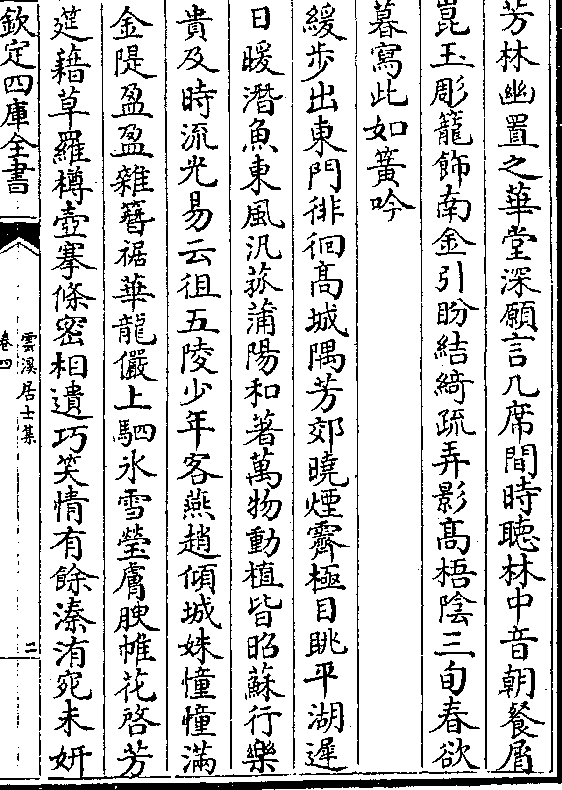 芳林幽置之華堂深願言几席間時聽林中音朝餐屑
崑玉彫籠飾南金引盼結綺疏弄影髙梧陰三旬春欲
暮寫此如簧吟
緩步出東門徘徊髙城隅芳郊曉煙霽極目眺平湖遲
日暖潛魚東風汎菰蒲陽和著萬物動植皆昭蘇行樂
貴及時流光易云徂五陵少年客燕趙傾城姝憧憧滿
金隄盈盈雜簪裾華龍儼上駟氷雪瑩膚腴帷花啓芳
筵藉草羅樽壺搴條密相遺巧笑情有餘溱洧宛未妍
欽定四庫全書
雲溪居士集
卷四
二